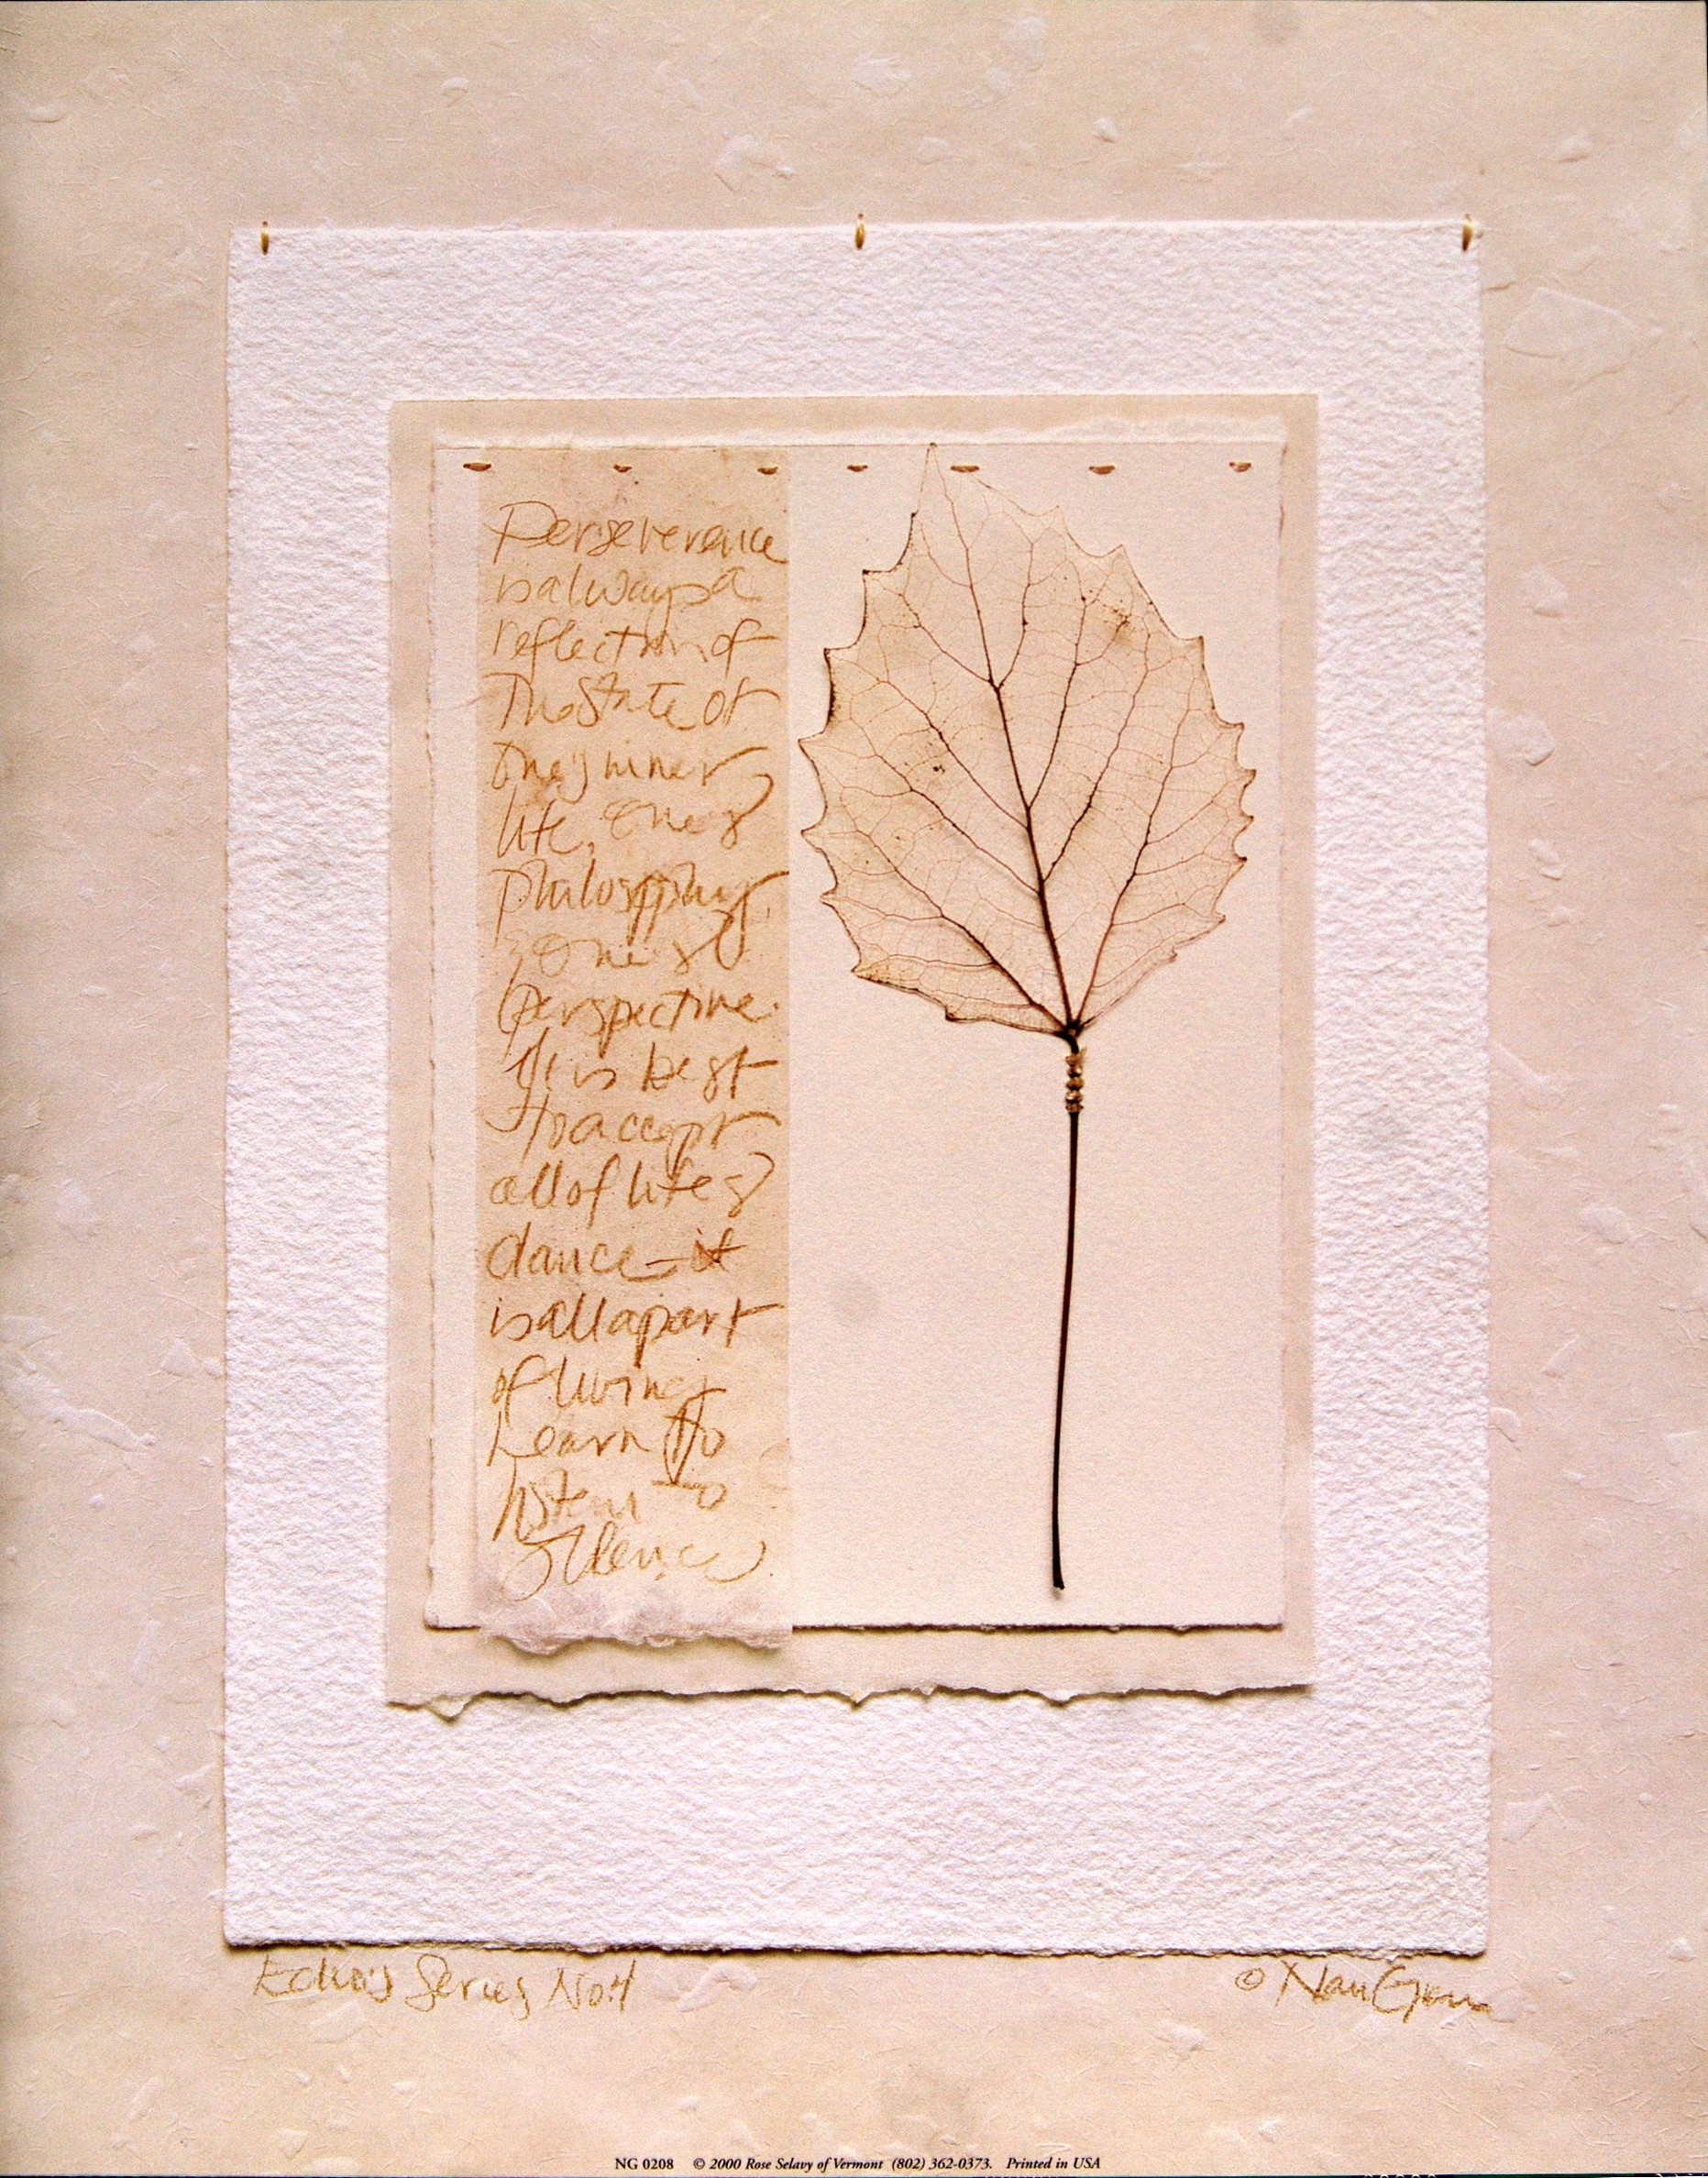 Perseverence
is always a
reflection of
The State of
One's inner
life, One's
philosophy,
One's
perspective.
It is best
to accept
all of life's
dance - it
is all a part
of living
Learn to
listen to
Silence
Echo's Series No.4
© Nan
NG 0208 © 2000 Rose Selavy of Vermont (802) 362-0373. Printed in USA